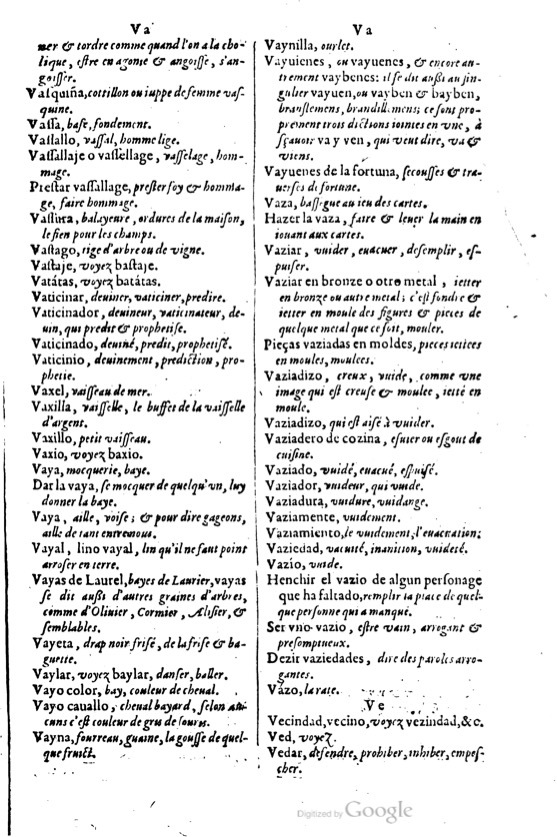 Va
ner & tordre comme quand l'on a la cho-
lique, estre en agonie & angoisse, s'an-
goisser.
Vasquiña, cottillon ou iuppe de femme vas-
quine.
Vassa, base, fondement.
Vassallo, vassal, homme lige.
Vassallaje o vassellage, vasselage, hom-
mage.
Prestar vassallage, prester foy & homma-
ge, faire hommage.
Vassura, balayeure, ordures de la maison,
le fien pour les champs.
Vastago, tige d'arbre ou de vigne.
Vastaje, voyez bastaje.
Vatátas, voyez batátas.
Vaticinar, deuiner, vaticiner, predire.
Vaticinador, deuineur, vaticinateur, de-
uin, qui predit & prophetise.
Vaticinado, deuiné, predit, prophetisé.
Vaticinio, deuinement, prediction, pro-
phetie.
Vaxel, vaisseau de mer.
Vaxilla, vaisselle, le buffet de la vaisselle
d'argent.
Vaxillo, petit vaisseau.
Vaxio, voyez baxio.
Vaya, mocquerie, baye.
Dar la vaya, se mocquer de quelqu'vn, luy
donner la baye.
Vaya, aille, voise; & pour dire gageons,
aille de tant entrenous.
Vayal, lino vayal, lin qu'il ne faut point
arroser en terre.
Vayas de Laurel, bayes de Laurier, vayas
se dit aussi d'autres graines d'arbres,
comme d'Oliuier, Cormier, Alisier, &
semblables.
Vayeta, drap noir frisé, de la frise & ba-
guette.
Vaylar, voyez baylar, danser, baller.
Vayo color, bay, couleur de cheual.
Vayo cauallo, cheual bayard, selon au-
cuns c'est couleur de gru de souris.
Vayna, fourreau, guaine, la gousse de quel-
que fruict.
Va
Vaynilla, ourlet.
Vayuienes, ou vayuenes, & encore au-
trement vaybenes: il se dit aussi au sin-
gulier vayuen, ou vayben & bayben,
branslemens, brandillemens; ce sont pro-
prement trois dictions iointes en vne, à
sçauoir va y ven, qui veut dire, va &
viens.
Vayuenes de la fortuna, secousses & tra-
uerses de fortune.
Vaza, basse que au ieu des cartes.
Hazer la vaza, faire & leuer la main en
iouant aux cartes.
Vaziar, vuider, euacuer, desemplir, es-
puiser.
Vaziar en bronze o otro metal, ietter
en bronze ou autre metal; c'est fondre &
ietter en moule des figures & pieces de
quelque metal que ce soit, mouler.
Pieças vaziadas en moldes, pieces iettees
en moules, moulees.
Vaziadizo, creux, vuide, comme vne
image qui est creuse & moulee, ietté en
moule.
Vaziadizo, qui est aisé à vuider.
Vaziadero de cozina, esuier ou esgout de
cuisine.
Vaziado, vuidé, euacué, espuisé.
Vaziador, vuideur, qui vuide.
Vaziadura, vuidure, vuidange.
Vaziamente, vuidement.
Vaziamiento, le vuidement, l'euacuation;
Vaziedad, vacuité, inanition, vuideté.
Vazío, vuide.
Henchir el vazio de algun personage
que ha faltado, remplir la place de quel-
que personne qui a manqué.
Ser vno vazio, estre vain, arrogant &
presomptueux.
Dezir vaziedades, dire des paroles arro-
gantes.
Vázo, la rate.
Ve
Vecindad, vecino, voyez vezindad, &c.
Ved, voyez.
Vedar, defendre, prohiber, inhiber, empes-
cher.
Digitized by Google